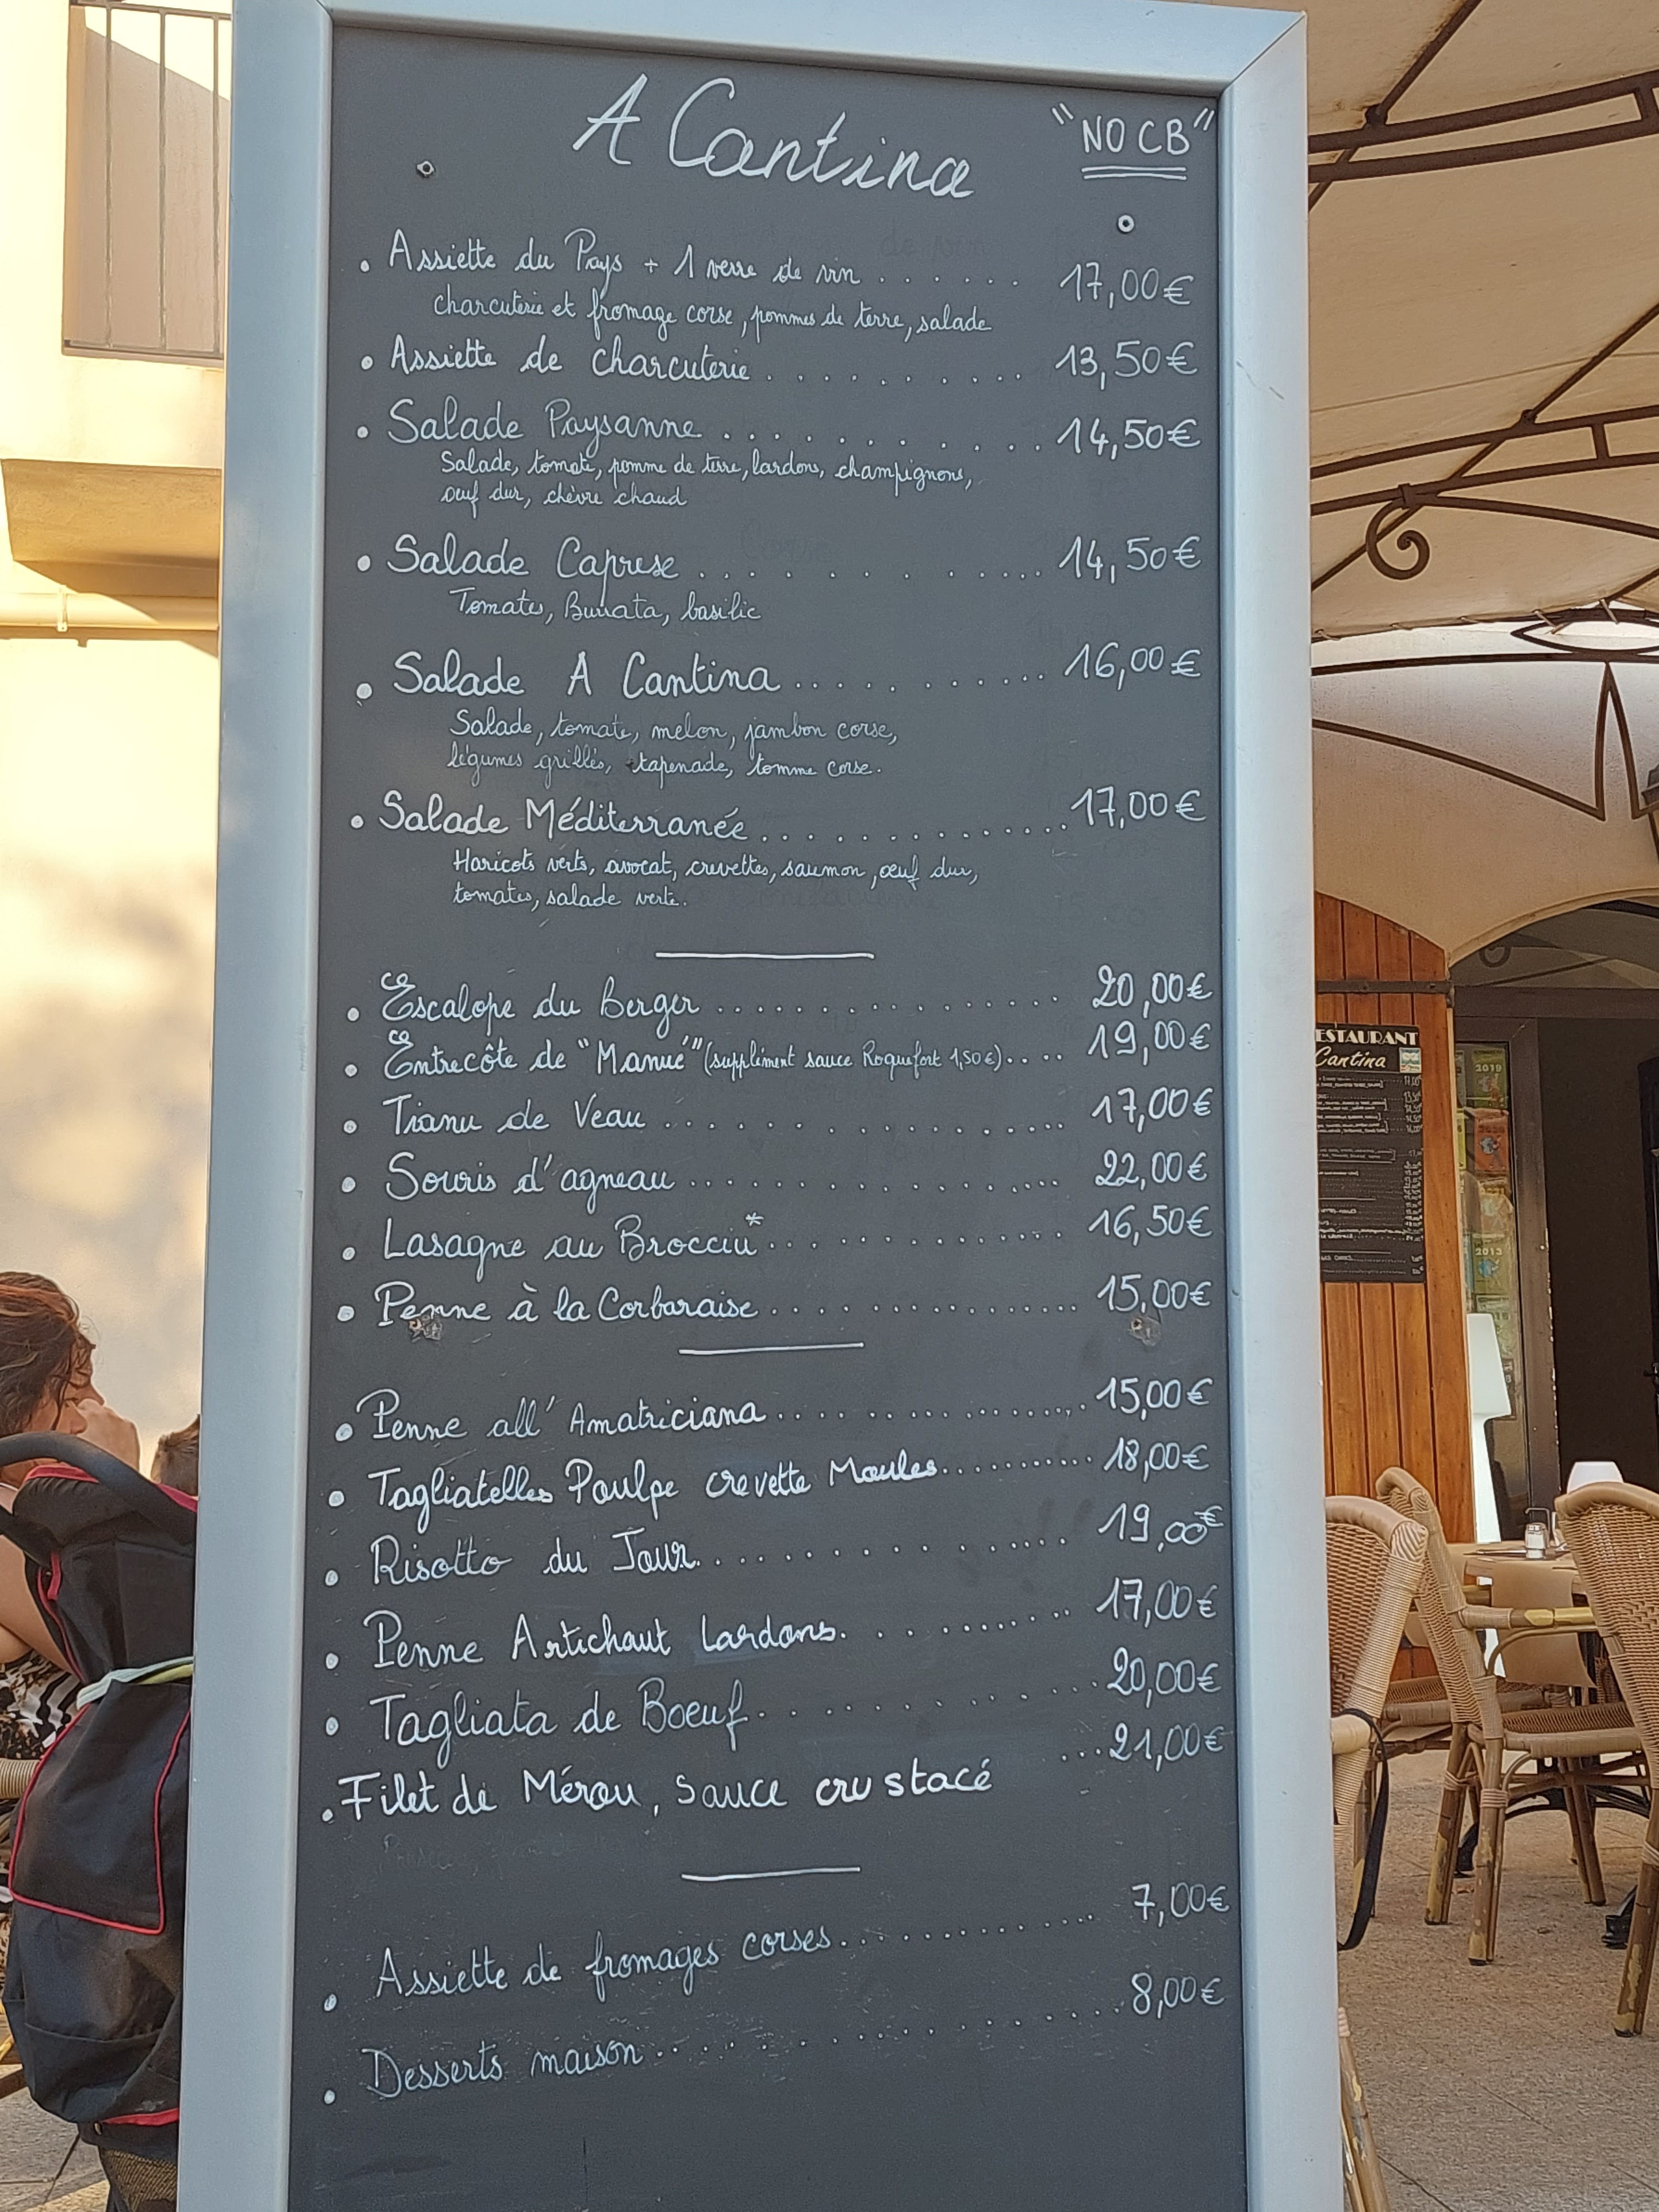 A Cantina
"NO CB"
• Assiette du Pays + 1 verre de vin . . . . . . 17,00€
charcuterie et fromage corse, pommes de terre, salade
• Assiette de charcuterie . . . . . . . . . . 13,50€
• Salade Paysanne . . . . . . . . . . . . 14,50€
Salade, tomate, pomme de terre, lardons, champignons,
oeuf dur, chèvre chaud
• Salade Caprese . . . . . . . . . . . . 14,50€
Tomates, Burrata, basilic
• Salade A Cantina . . . . . . . . . . . 16,00€
Salade, tomate, melon, jambon corse,
légumes grillés, tapenade, tomme corse.
• Salade Méditerranée . . . . . . . . . . . . . 17,00€
Haricots verts, avocat, crevettes, saumon, oeuf dur,
tomates, salade verte.
• Escalope du Berger . . . . . . . . . . . . . 20,00€
• Entrecôte de "Manué" (supplément sauce Roquefort 1,50€) . . . . 19,00€
• Tianu de Veau . . . . . . . . . . . . . . . 17,00€
• Souris d'agneau . . . . . . . . . . . . . . . 22,00€
• Lasagne au Brocciu* . . . . . . . . . . . . 16,50€
• Penne à la Corbaraise . . . . . . . . . . . . . . 15,00€
• Penne all' Amatriciana . . . . . . . . . . . . . . 15,00€
• Tagliatelles Poulpe crevette Moules . . . . . . . . . . 18,00€
• Risotto du Jour . . . . . . . . . . . . . 19,00€
• Penne Artichaut Lardons . . . . . . . . . . 17,00€
• Tagliata de Boeuf . . . . . . . . . . . . 20,00€
• Filet de Mérou, sauce crustacé ... 21,00€
• Assiette de fromages corses . . . . . . . . . . 7,00€
• Desserts maison . . . . . . . . . . . . . . . 8,00€
ESTAURANT
Cantina
2019
2013